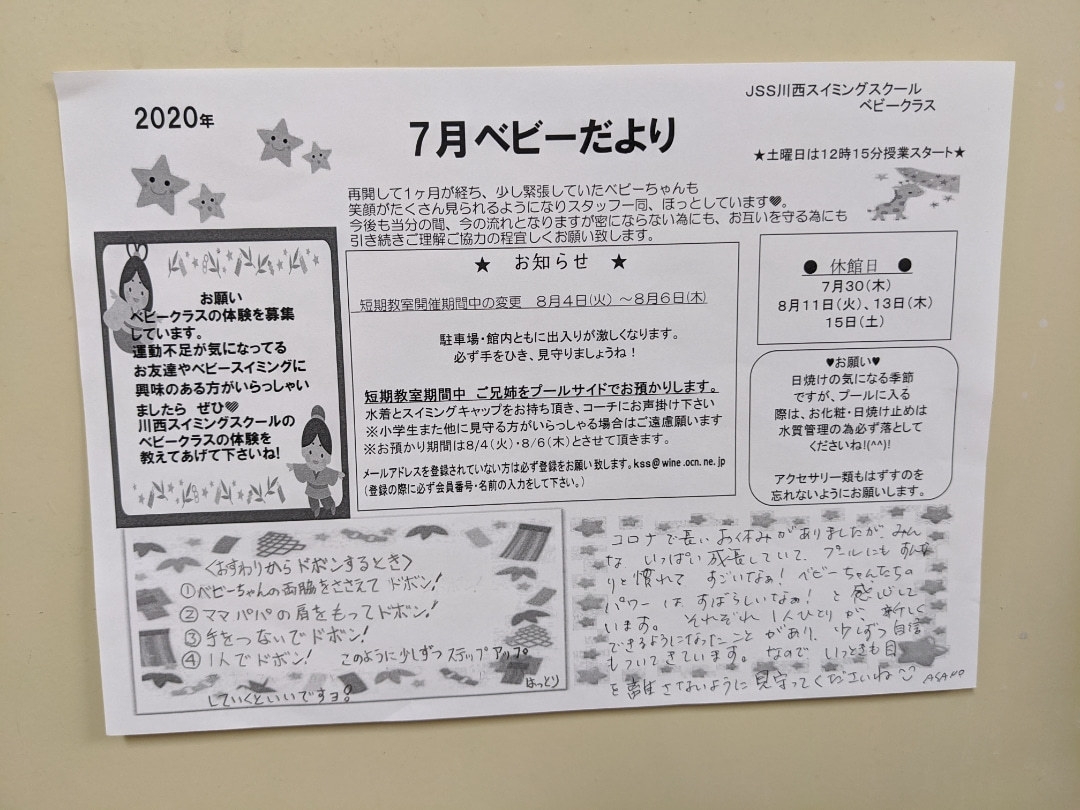 2020年
7月ベビーだより
JSS川西スイミングスクール
ベビークラス
★土曜日は12時15分授業スタート★
再開して1ヶ月が経ち、少し緊張していたベビーちゃんも
笑顔がたくさん見られるようになりスタッフ一同、ほっとしています♥。
今後も当分の間、今の流れとなりますが密にならない為にも、お互いを守る為にも
引き続きご理解ご協力の程宜しくお願い致します。
お願い
ベビークラスの体験を募集
しています。
運動不足が気になってる
お友達やベビースイミングに
興味のある方がいらっしゃい
ましたら ぜひ♥
川西スイミングスクールの
ベビークラスの体験を
教えてあげて下さいね!
★ お知らせ ★
短期教室開催期間中の変更 8月4日(火) ～8月6日(木)
駐車場・館内ともに出入りが激しくなります。
必ず手をひき、見守りましょうね！
短期教室期間中 ご兄姉をプールサイドでお預かりします。
水着とスイミングキャップをお持ち頂き、コーチにお声掛け下さい
※小学生また他に見守る方がいらっしゃる場合はご遠慮願います
※お預かり期間は8/4(火)・8/6(木)とさせて頂きます。
メールアドレスを登録されていない方は必ず登録をお願い致します。kss@wine.ocn.ne.jp
(登録の際に必ず会員番号・名前の入力をして下さい。)
● 休館日 ●
7月30(木)
8月11日(火)、13日(木)
15日(土)
♥お願い♥
日焼けの気になる季節
ですが、プールに入る
際は、お化粧・日焼け止めは
水質管理の為必ず落として
くださいね!(^^)!
アクセサリー類もはずすのを
忘れないようにお願いします。
〈おすわりからドボンするとき〉
①ベビーちゃんの両脇をささえて ドボン!
②ママパパの肩をもってドボン!
③手をつないでドボン!
④1人でドボン! このように少しずつ ステップアップ
していくといいですョ!
はっとり
コロナで長いお休みがありましたが、みん
な いっぱい成長していて、プールにも すんな
りと慣れて すごいなぁ! ベビーちゃんたちの
パワーは すばらしいなぁ! と感じて
います。 それぞれ 1人ひとりが、新しく
できるようになったことがあり、少しずつ自信
もついてきています。 なので いっときも目
を離さないように見守ってくださいね
ASANO